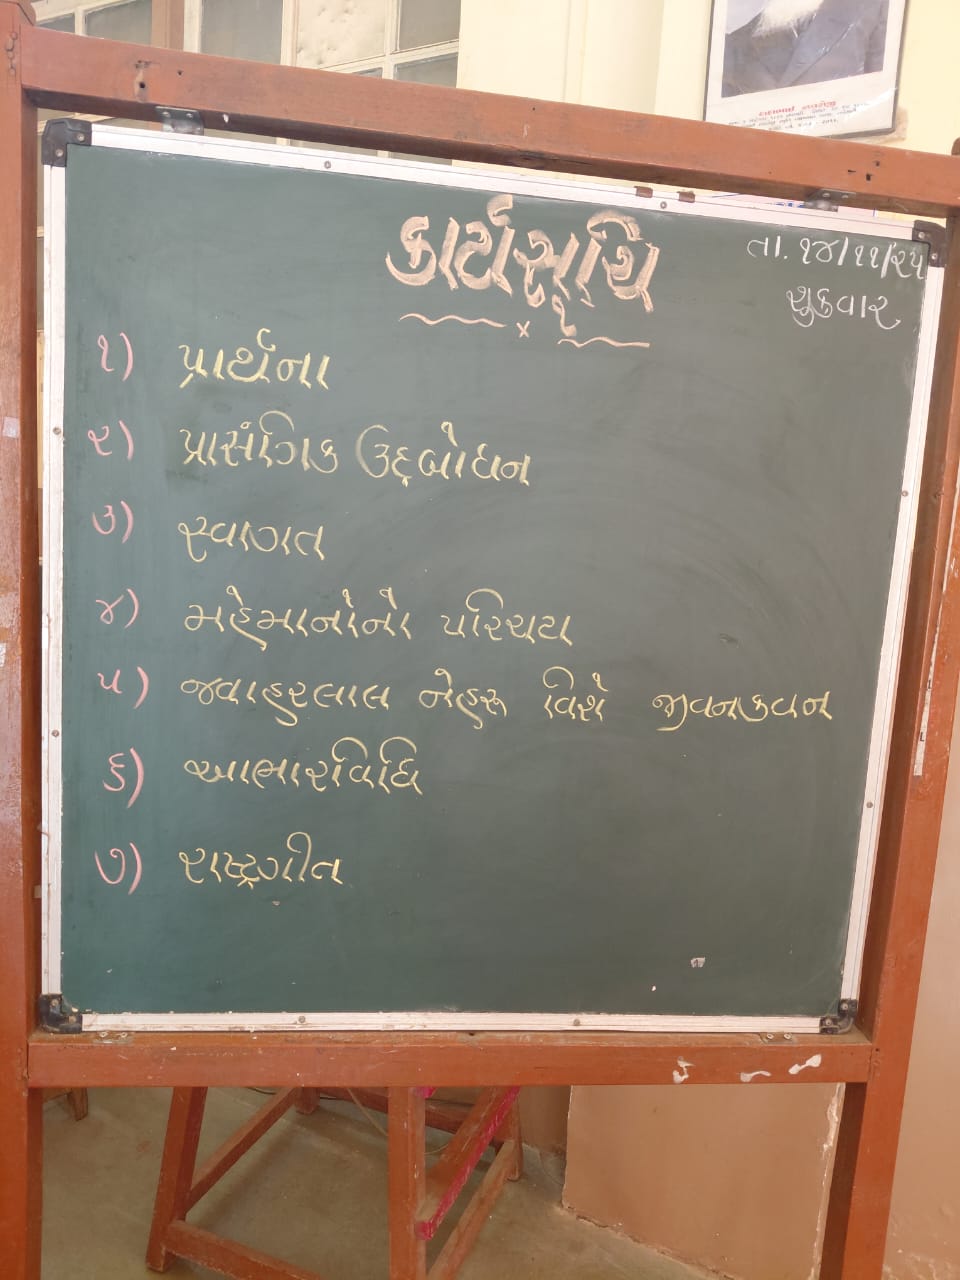 કાર્યસૂચિ
તા. ૧૪/૧૧/૨૫
શુક્રવાર
૧) પ્રાર્થના
૨) પ્રાસંગિક ઉદ્‌બોધન
૩) સ્વાગત
૪) મહેમાનોનો પરિચય
૫) જવાહરલાલ નેહરુ વિશે જીવનકવન
૬) આભારવિધિ
૭) રાષ્ટ્રગીત